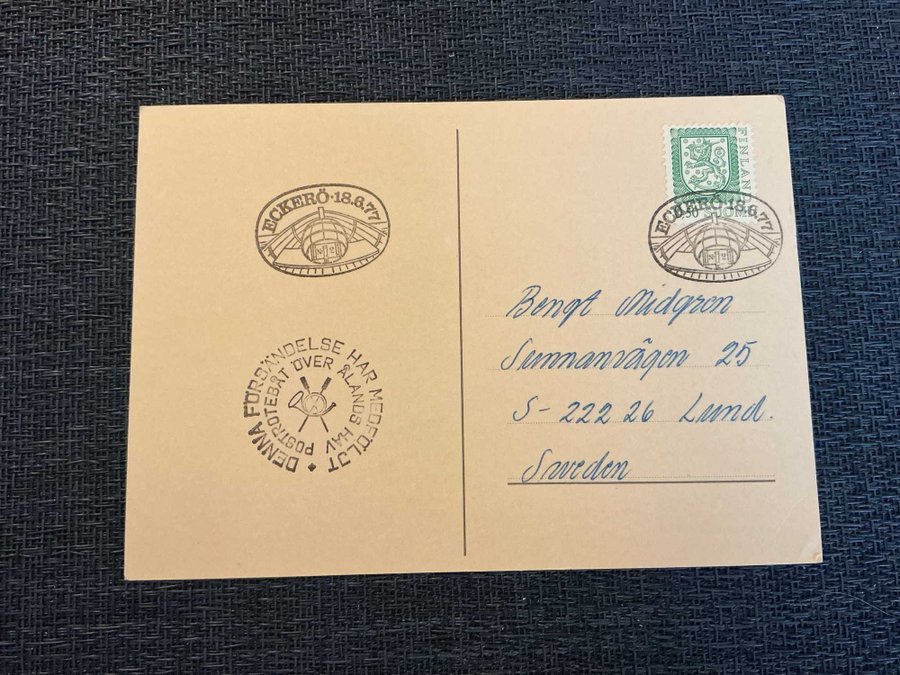 FINLAND
0.50 SUOMI
ECKERÖ·18.6.77
ECKERÖ·18.6.77
No 2
Bengt Nidgren
Sunnanvägen 25
S-222 26 Lund.
Sweden
DENNA FÖRSÄNDELSE HAR MEDFÖLJT
POSTROTEBÅT ÖVER ÅLANDS HAV